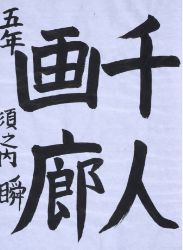 千人
画廊
五年 須之内瞬